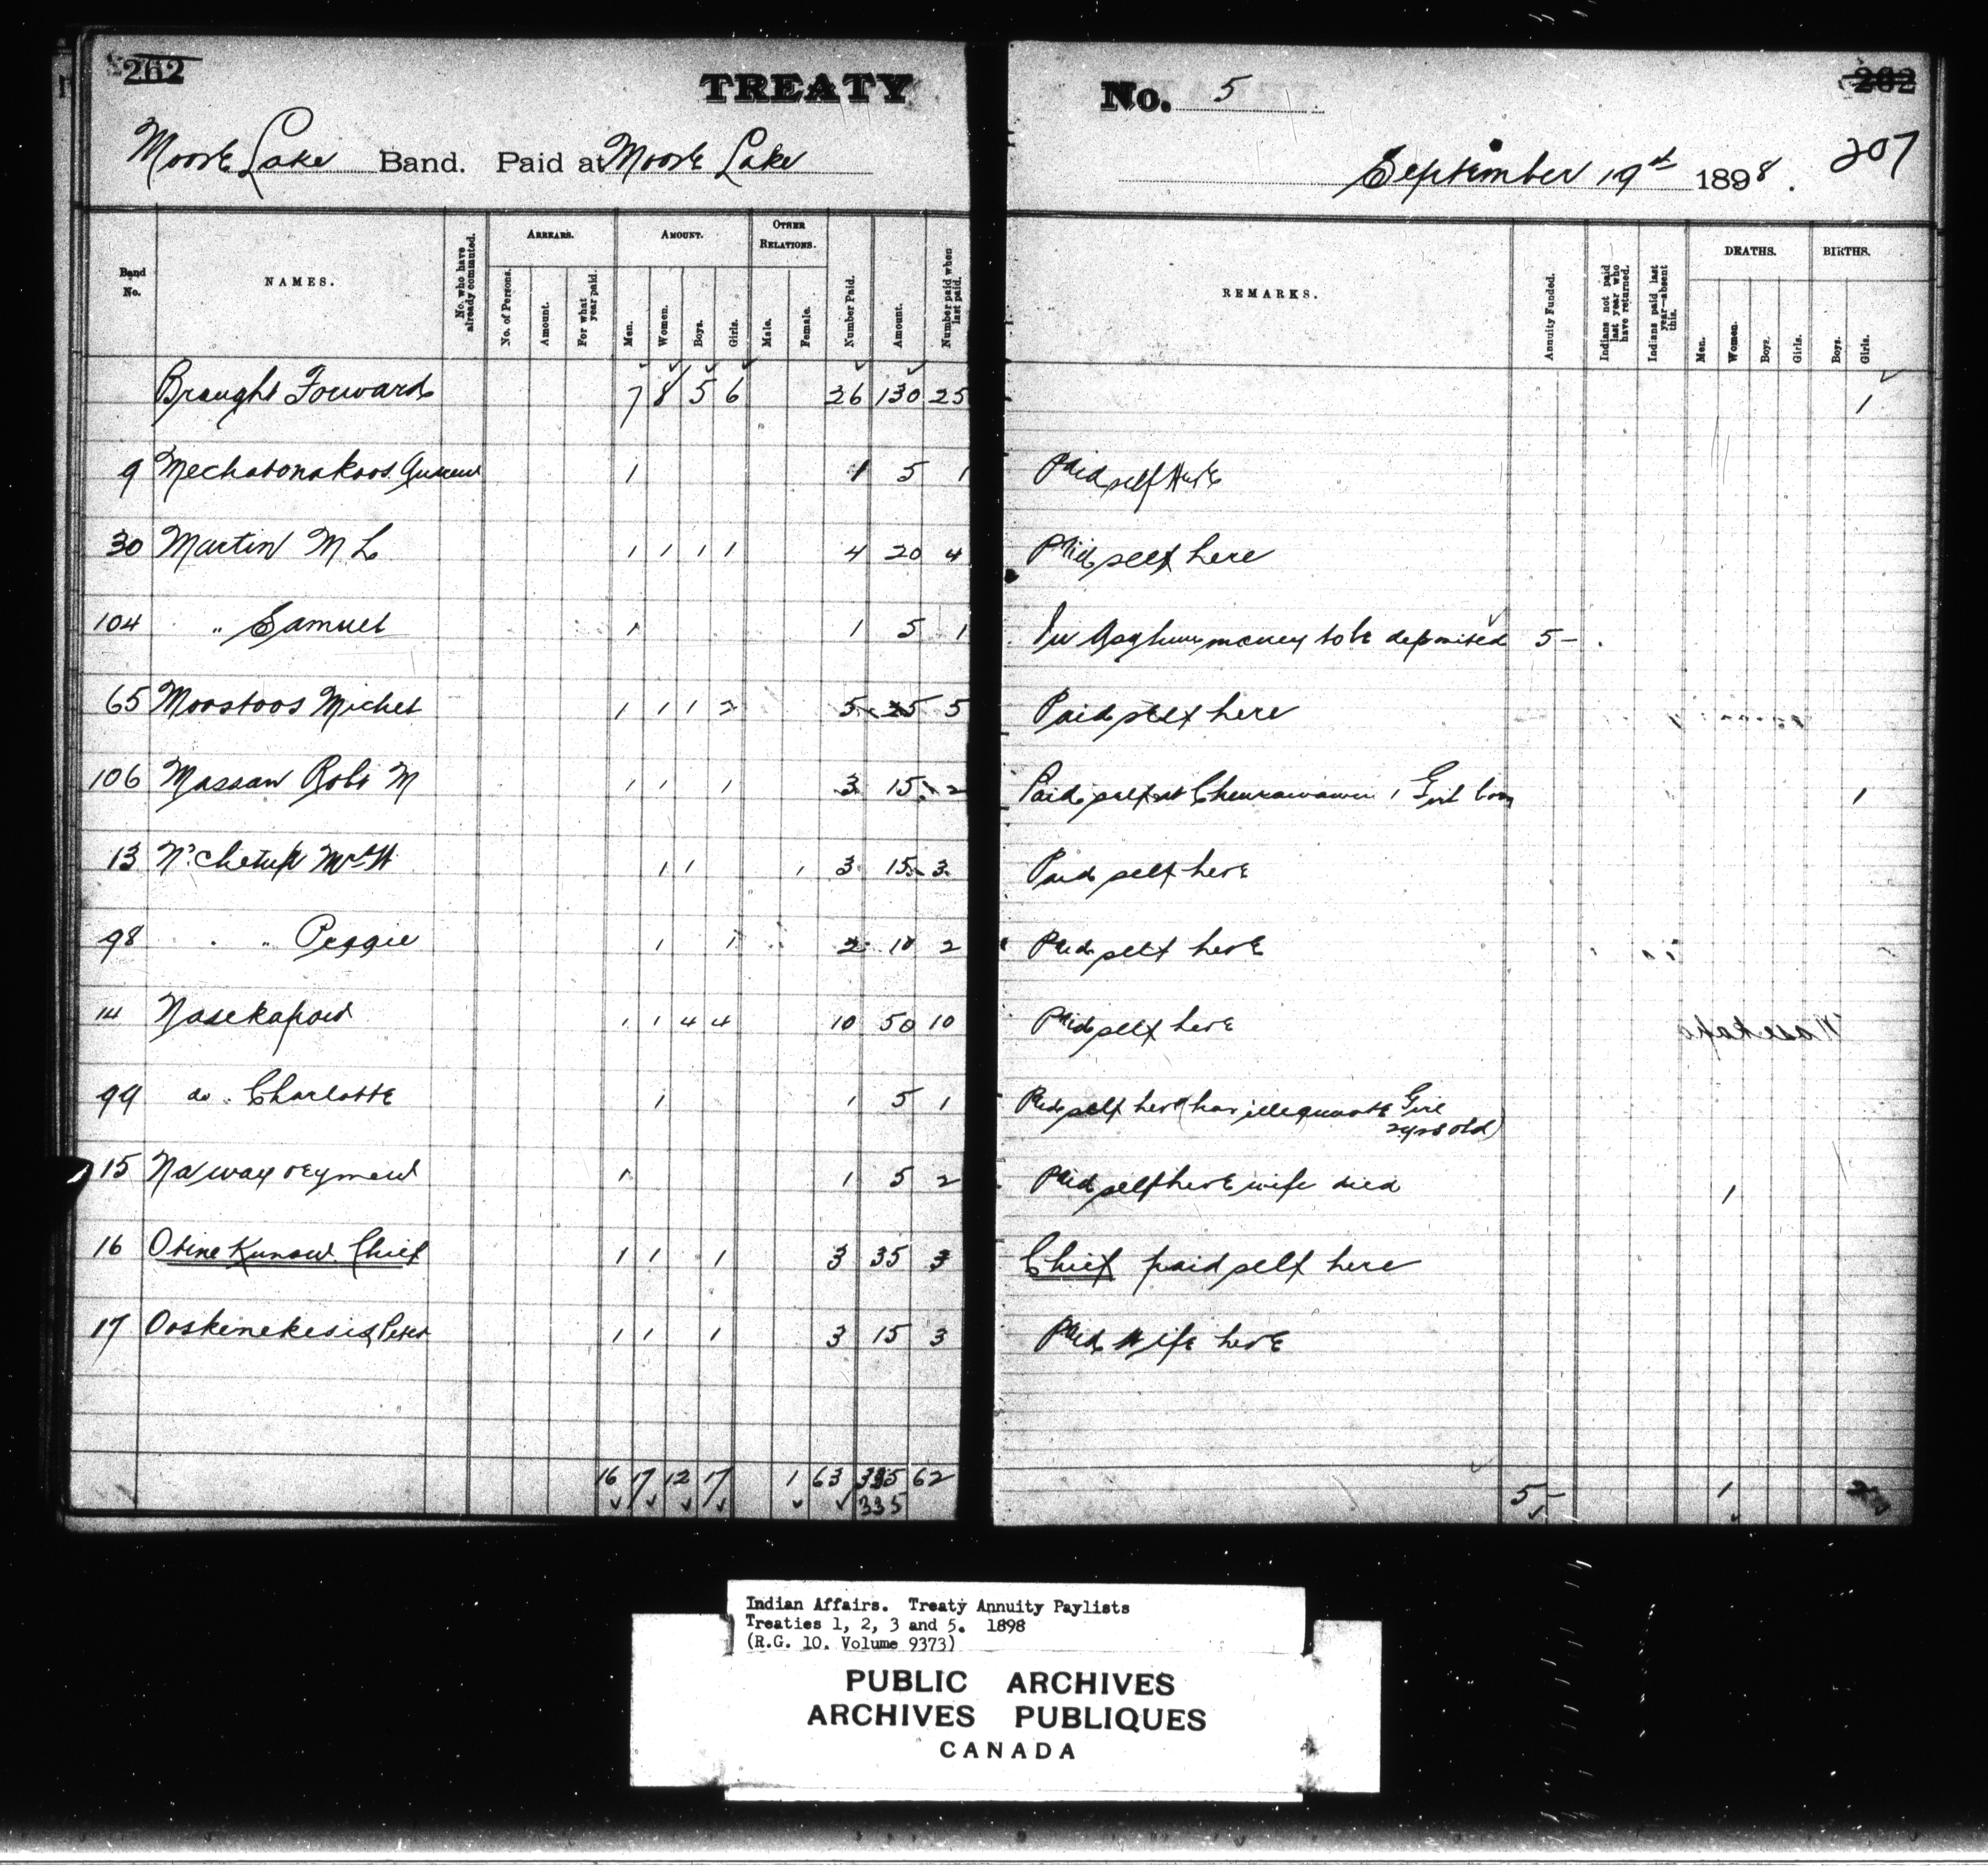 262 TREATY No. 5 262
207
Moose Lake Band. Paid at Moose Lake September 19th 1898.
Band No. NAMES. No. who have already commuted. ARREARS. AMOUNT. OTHER RELATIONS. Number Paid. Amount. Number paid when last paid. REMARKS. Annuity Funded. Indians not paid last year who have returned. Indians paid last year—absent this. DEATHS. BIRTHS.
No. of Persons. Amount. For what year paid. Men. Women. Boys. Girls. Male. Female. Men. Women. Boys. Girls. Boys. Girls.
Brought Forward 7 8 5 6 26 130 25 1
9 Mechatonakoos 1 1 5 1 Paid self here
30 Martin M L 1 1 1 1 4 20 4 Paid self here
104 " Samuel 1 1 5 1 money to be deposited 5 –
65 Moostoos Michel 1 1 1 2 5 25 5 Paid self here
106 Massan Robt M 1 1 1 3 15 2 Paid self at 1 Girl born 1
13 N'Chetup Mrs W 1 1 1 3 15 3 Paid self here
98 " " Peggie 1 1 2 10 2 Paid self here
14 Nasekapow 1 1 4 4 10 50 10 Paid self here
99 do. Charlotte 1 1 5 1 Paid self here (has illegitimate Girl
2 yrs old)
15 1 1 5 2 Paid self here wife died 1
16 Obine Kunow Chief 1 1 1 3 35 3 Chief paid self here
17 Ooskenekesis Peter 1 1 1 3 15 3 Paid wife here
16 17 12 17 1 63 335 62 5 – 1 2
335
Indian Affairs. Treaty Annuity Paylists
Treaties 1, 2, 3 and 5. 1898
(R.G. 10. Volume 9373)
PUBLIC ARCHIVES
ARCHIVES PUBLIQUES
CANADA